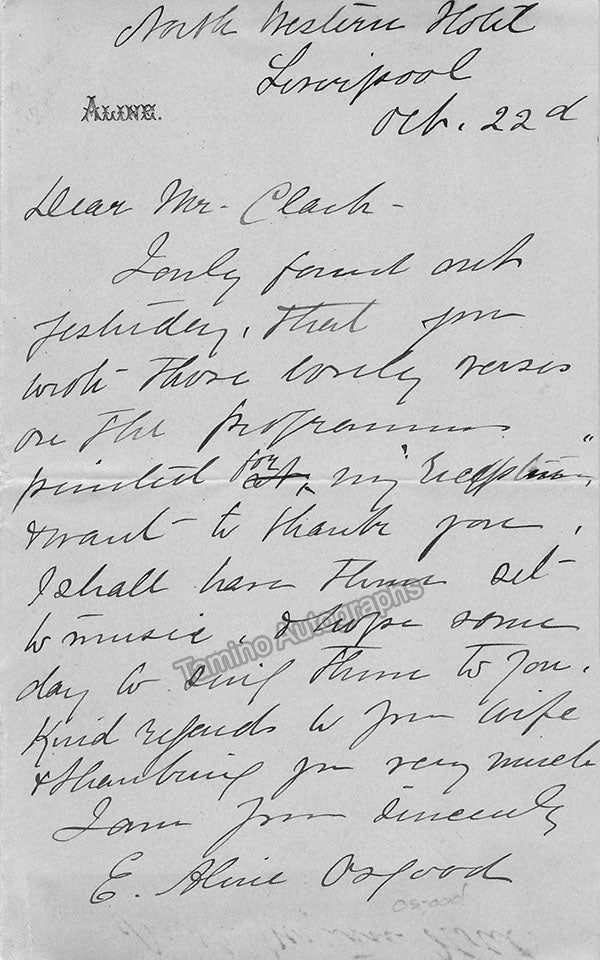 North Western Hotel
Liverpool
Oct. 22d
ALINE.
Dear Mr. Clark-
I only found out
yesterday, that you
wrote those lovely verses
on the programme
printed for at my "Reception",
& want to thank you,
I shall have them set
to music, & hope some
day to sing them to you.
Kind regards to your wife
& thanking you very much
I am yours sincerely
E. Aline Osgood
Osgood
Tamino Autographs